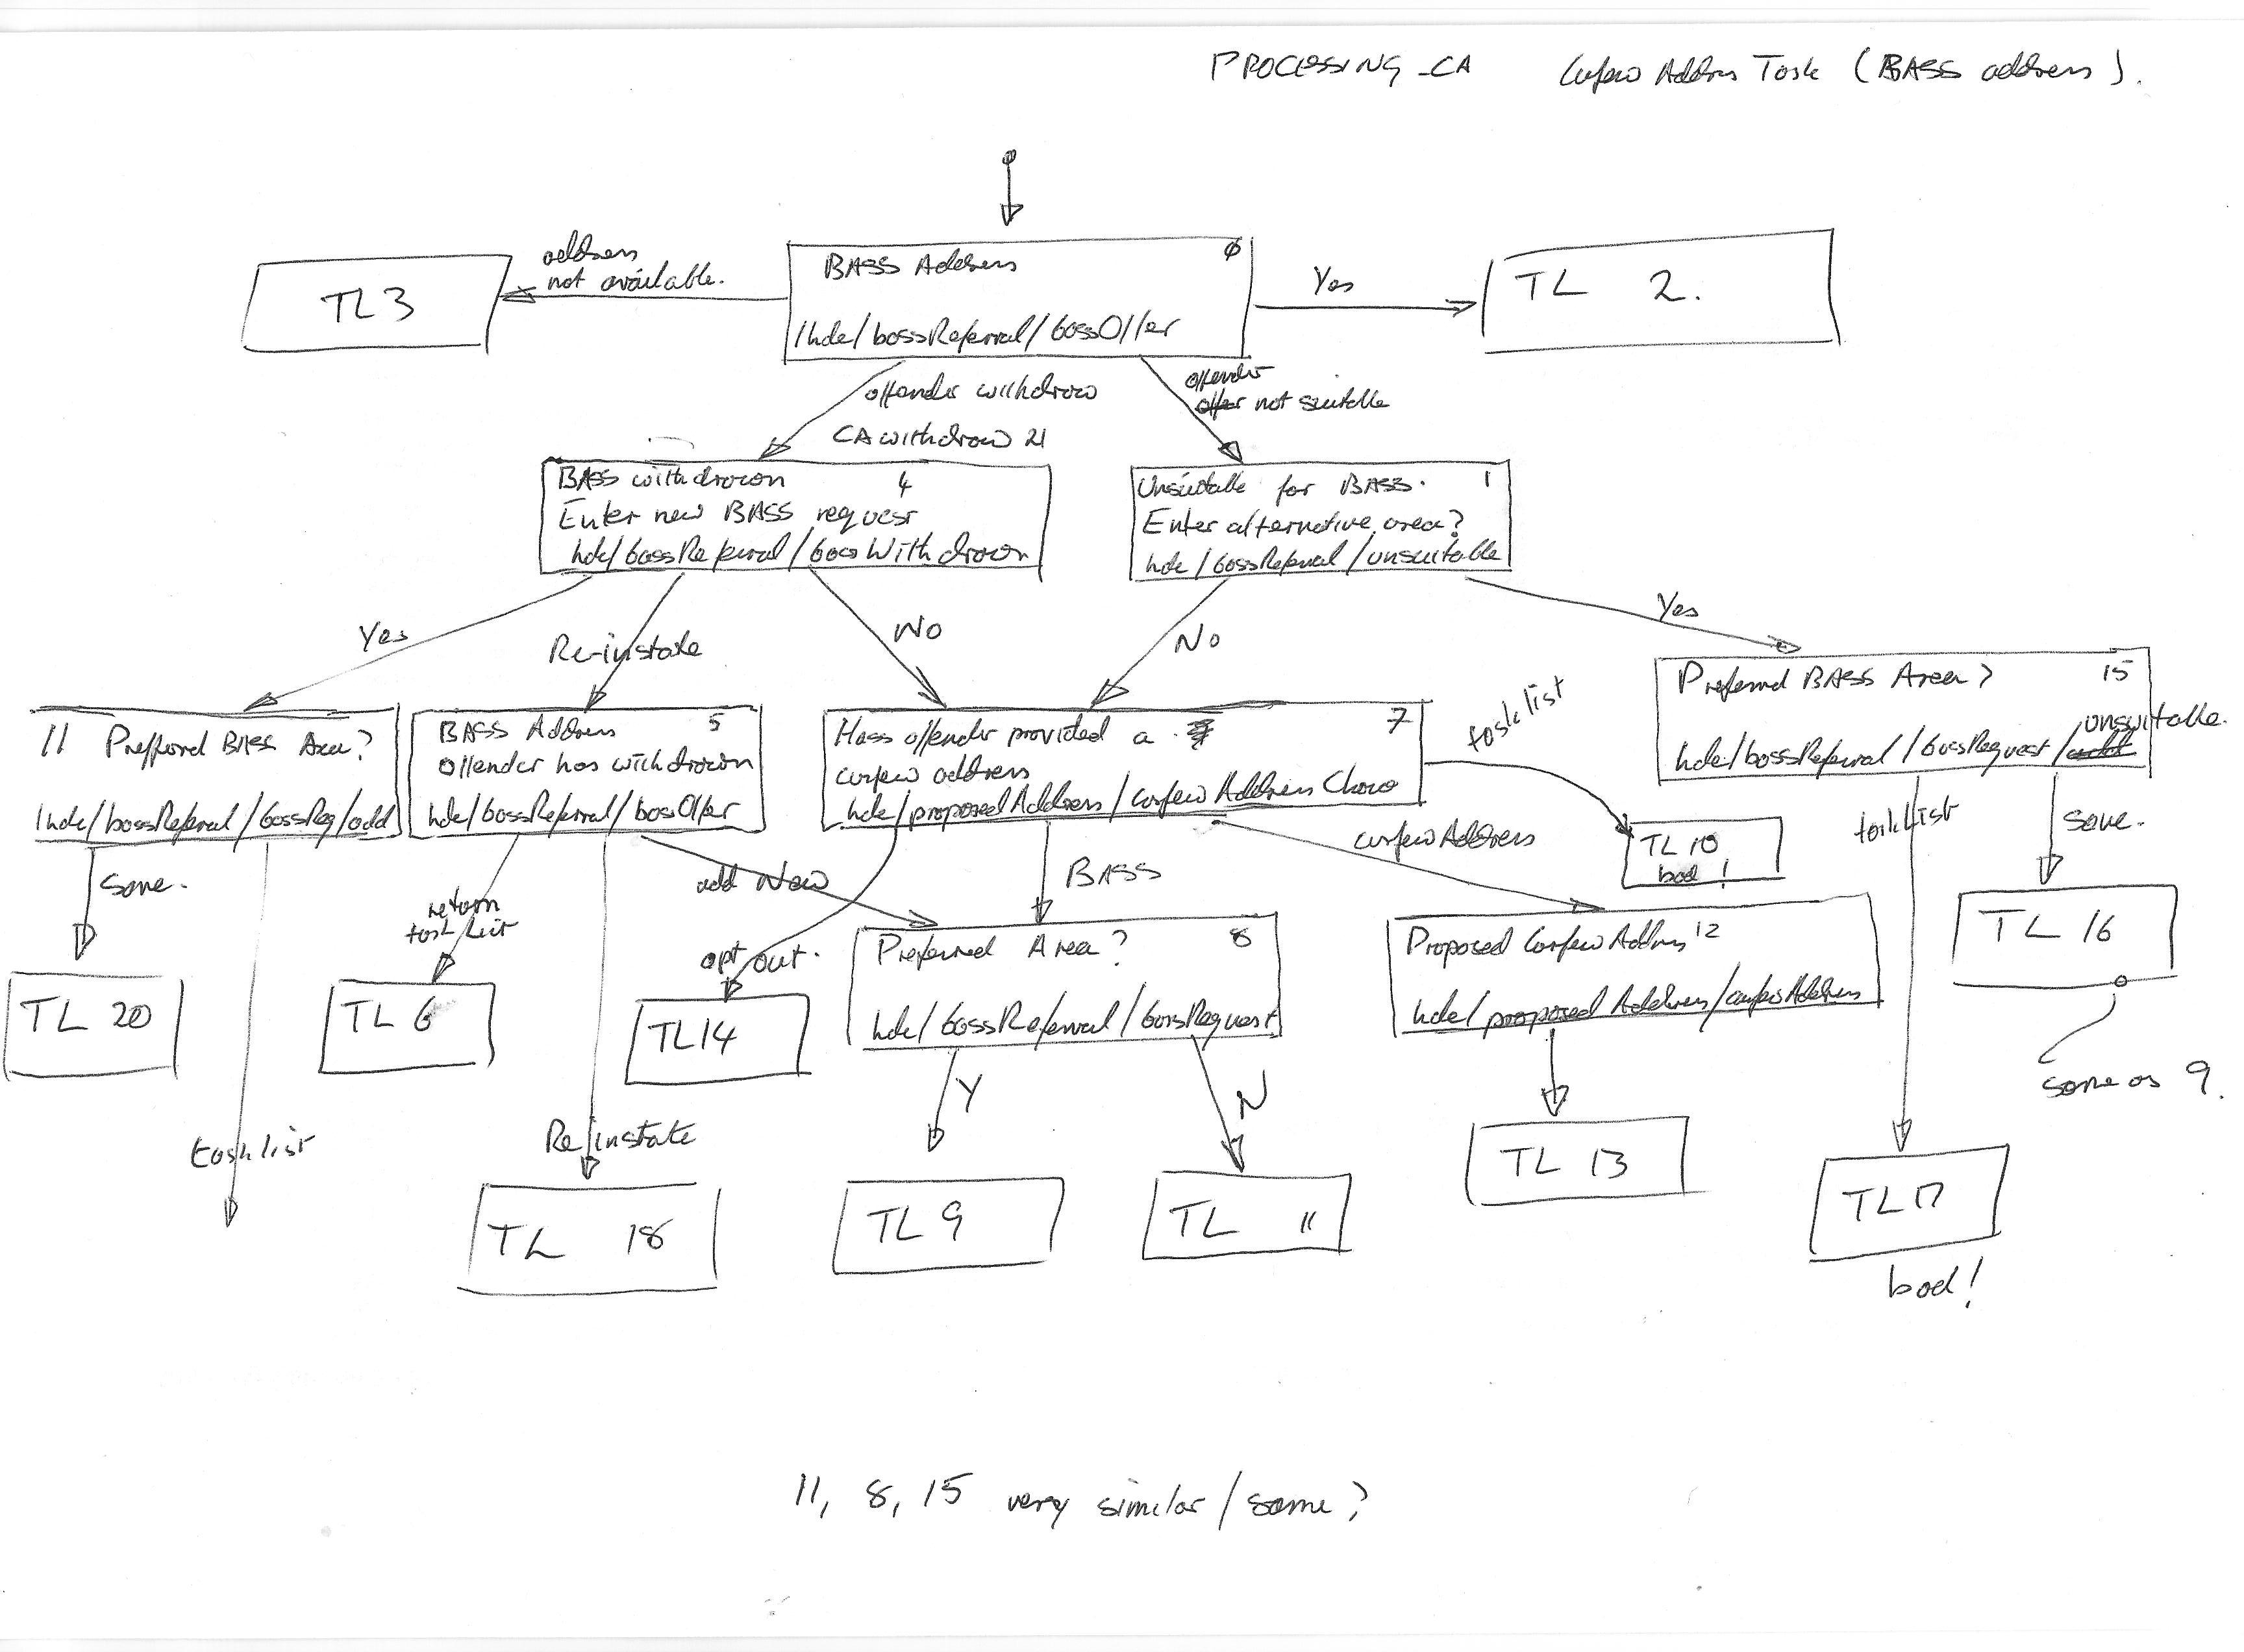 PROCESSING_CA Curfew Address Task (BASS address).
address
not available.
TL 3
BASS Address 0
/hdc/bassReferral/bassOffer
Yes
TL 2.
offender withdraw
CA withdraw 21
offender
offer not suitable
BASS withdrawn 4
Enter new BASS request
hdc/bassReferral/bassWithdrawn
Unsuitable for BASS. 1
Enter alternative area?
hdc/bassReferral/unsuitable
Yes
Re-instate
No
No
Yes
11 Prefferred BASS Area?
/hdc/bassReferral/bassReq/add
BASS Address 5
offender has withdrawn
hdc/bassReferral/bassOffer
Hass offender provided a 7
curfew address
hdc/proposedAddress/curfewAddressChoice
tasklist
Preferred BASS Area? 15
unsuitable.
hdc/bassReferral/bassRequest/
TL 10
bad!
save.
return
task list
add New
opt out.
BASS
curfewAddress
taskList
save.
Preferred Area? 8
hdc/bassReferral/bassRequest
Proposed Curfew Address 12
hdc/proposedAddress/curfewAddress
TL 16
same as 9.
TL 20
TL 6
TL 14
tasklist
Re-instate
Y
N
TL 18
TL 9
TL 11
TL 13
TL 17
bad!
11, 8, 15 very similar/same?